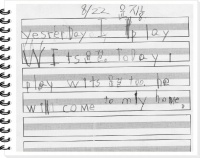 8/22
yesterday I play
With. Today I
play with too. he
will come to my home.